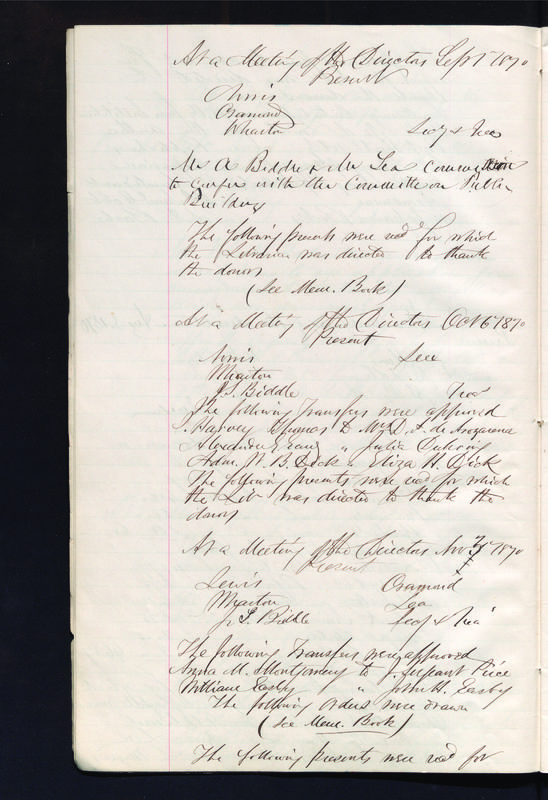 At a Meeting of the Directors Sept 1 1870
Present
Norris
Cramond
Wharton
Secy & Trea
Mr A Biddle & Mr Lea
to confer with the Committee on Public
Building
The following presents were recd for which
the Librarian was directed to thank
the donors
(See Mem. Book)
At a Meeting of the Directors Oct 6 1870
Present
Norris Lea
Wharton
J. S. Biddle Trea
The following Transfers were approved
J. Harvey Thomas D
Alexander " Julia
Adm. N. B. Dick " Eliza H. Dick
The following presents were recd for which
the Lib was directed to thank the
donors
At a Meeting of the Directors Nov 3 1870
Present
Lewis Cramond
Wharton Lea
J. S. Biddle Secy & Trea
The following Transfers were approved
Anna M. Montgomery to J. Sergeant Price
William Easby " John H. Easby
The following orders were drawn
(See Mem. Book)
The following presents were recd for